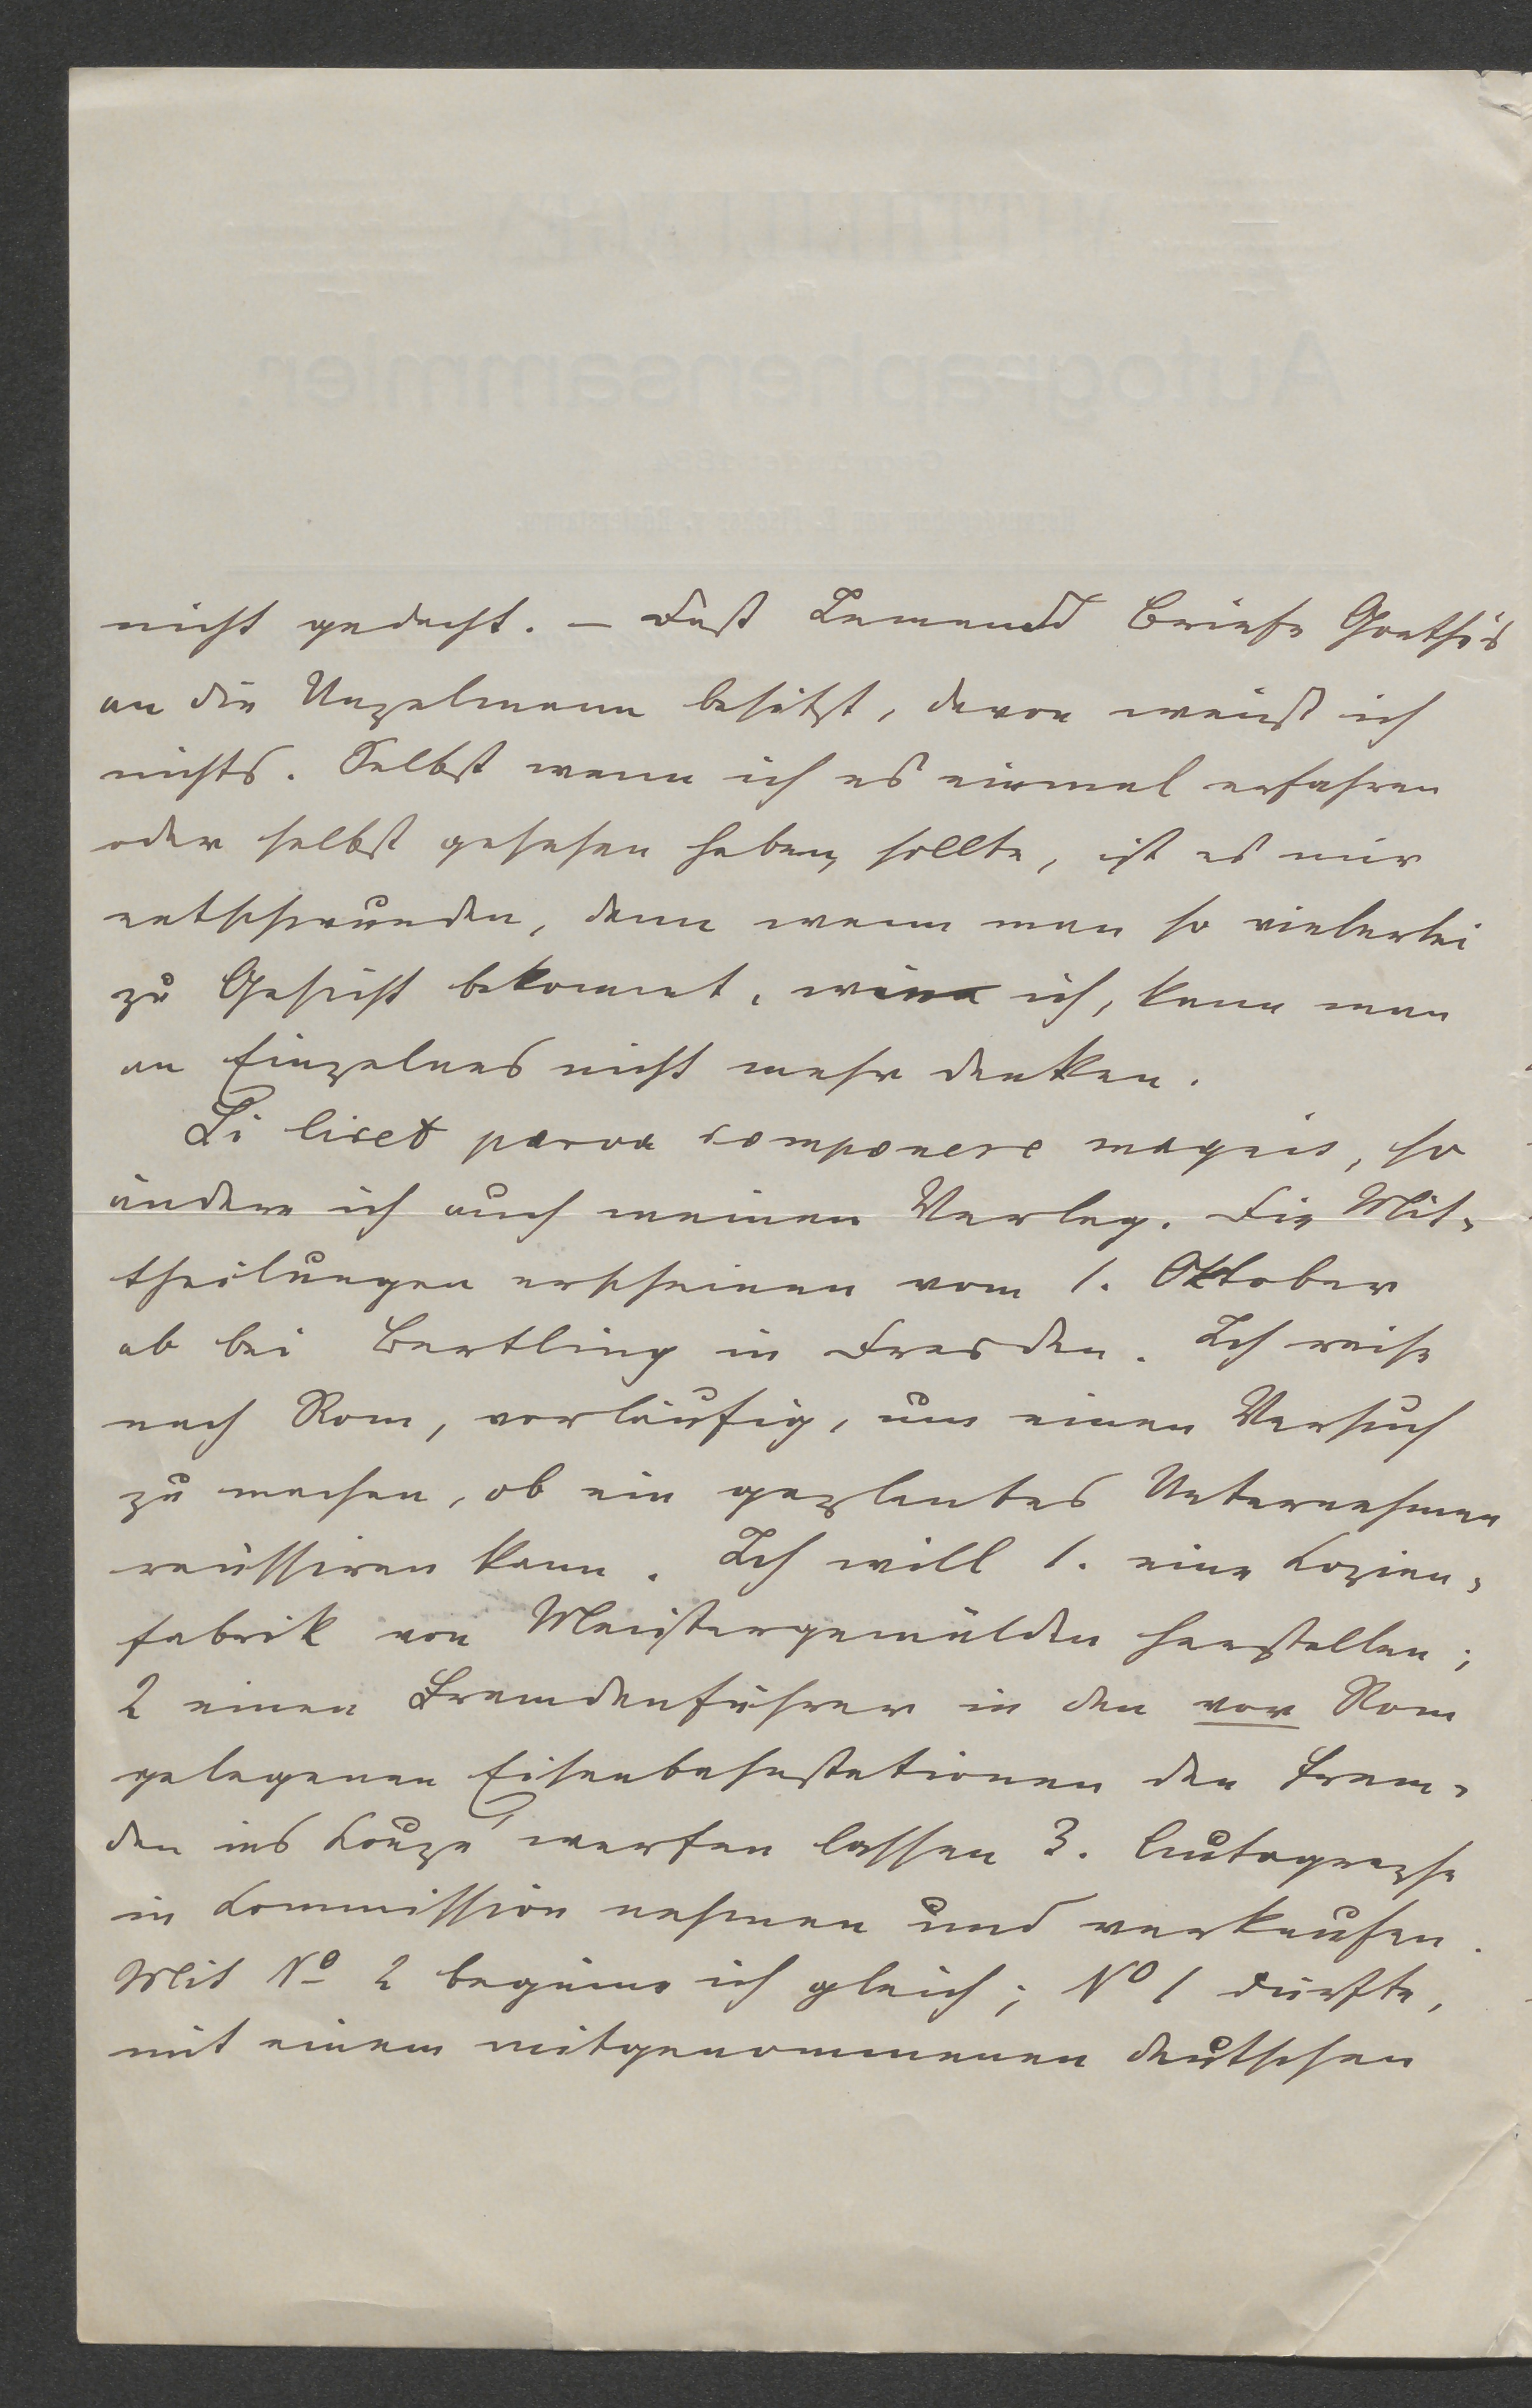 nicht gedacht. – Daß Jemand Briefe Goethe's
an die Unzelmann besitzt, davon weiß ich
nichts. Selbst wenn ich es einmal erfahren
oder selbst gesehen haben sollte, ist es mir
entschwunden, denn wenn man so vielerlei
zu Gesicht bekommt, wie ich, kann man
an Einzelnes nicht mehr denken.
Si licet parva componere magnis, so
ändere ich auch meinen Verlag. Die Mit-
theilungen erscheinen vom 1. Oktober
ab bei Bertling in Dresden. Ich reise
nach Rom, vorläufig, um einen Versuch
zu machen, ob ein geplantes Unternehmen
reüssiren kann. Ich will 1. eine Copien-
fabrik von Meistergemälden herstellen;
2 einen Fremdenführer in den vor Rom
gelegenen Eisenbahnstationen den Frem-
den ins Coupé werfen lassen 3. Autographe
in Commission nehmen und verkaufen.
Mit No 2 beginne ich gleich; No 1 dürfte,
mit einem mitgenommenen deutschen